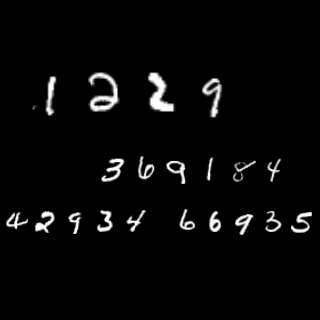 1229
369184
42934 66935